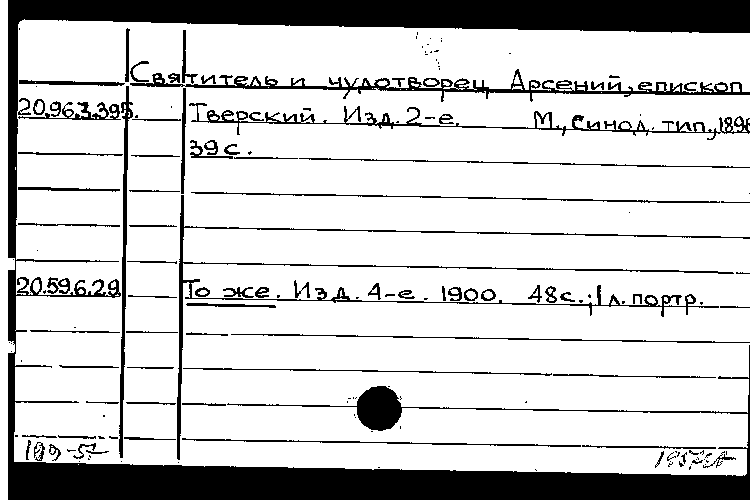 Святитель и чудотворец Арсений, епископ
20.96.3.395. Тверский. Изд. 2-е. М., Синод. тип., 1896
39 с.
20.59.6.29 То же. Изд. 4-е. 1900. 48с.; 1 л. портр.
199-57